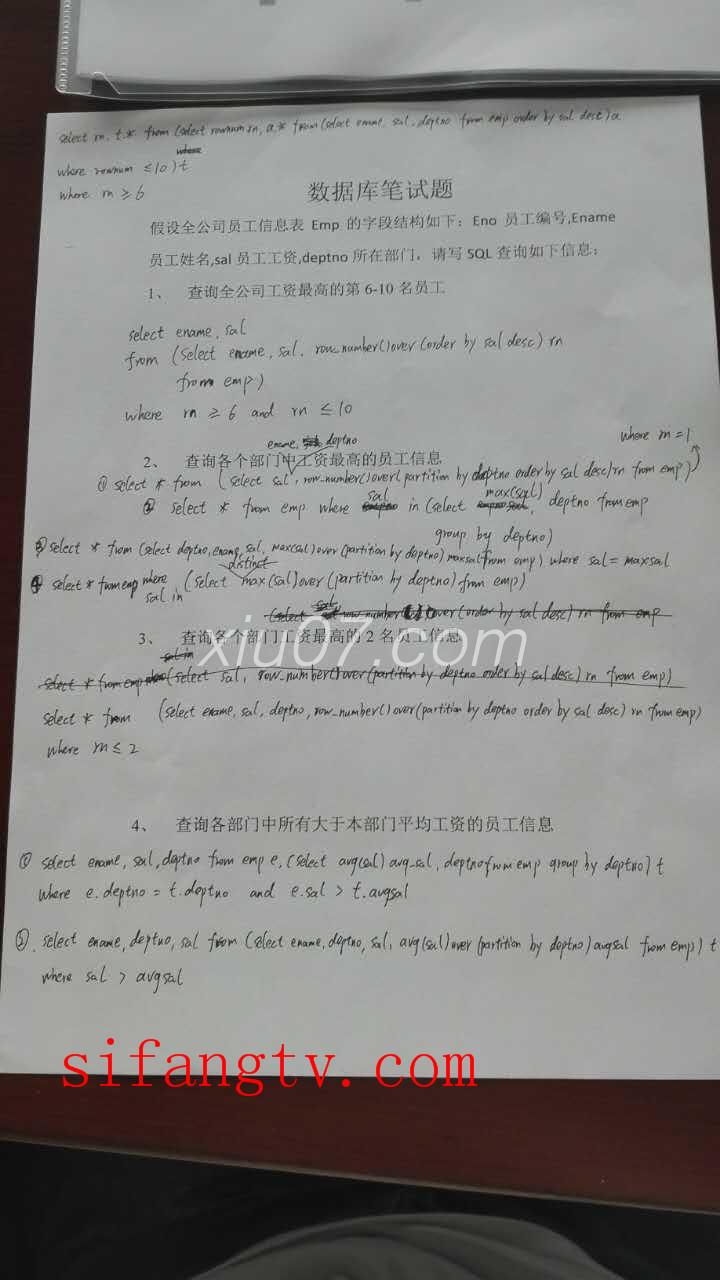 select rn, t.* from (select rownum rn, a.* from (select ename, sal, deptno from emp order by sal desc) a
where
where rownum ≤10) t
where rn ≥ 6
数据库笔试题
假设全公司员工信息表 Emp 的字段结构如下：Eno 员工编号,Ename
员工姓名,sal 员工工资,deptno 所在部门，请写 SQL 查询如下信息：
1、 查询全公司工资最高的第 6-10 名员工
select ename, sal
from (select ename, sal, row_number() over (order by sal desc) rn
from emp)
where rn ≥ 6 and rn ≤ 10
where rn = 1
ename, deptno
2、 查询各个部门中工资最高的员工信息
① select * from (select sal, row_number() over (partition by deptno order by sal desc) rn from emp)
sal max(sal)
② select * from emp where in (select , deptno from emp
group by deptno)
③ select * from (select deptno, ename, sal, max(sal) over (partition by deptno) maxsal from emp) where sal = maxsal
distinct
④ select * from emp where sal in (select max(sal) over (partition by deptno) from emp)
(select row_number() over (order by sal desc) rn from emp
3、 查询各个部门工资最高的 2 名员工信息
sal in
select * from emp (select sal, row_number() over (partition by deptno order by sal desc) rn from emp)
select * from (select ename, sal, deptno, row_number() over (partition by deptno order by sal desc) rn from emp)
where rn ≤ 2
4、 查询各部门中所有大于本部门平均工资的员工信息
① select ename, sal, deptno from emp e, (select avg(sal) avg_sal, deptno from emp group by deptno) t
where e.deptno = t.deptno and e.sal > t.avgsal
select ename, deptno, sal from (select ename, deptno, sal, avg(sal) over (partition by deptno) avgsal from emp) t
where sal > avgsal
xiu07.com
sifangtv.com